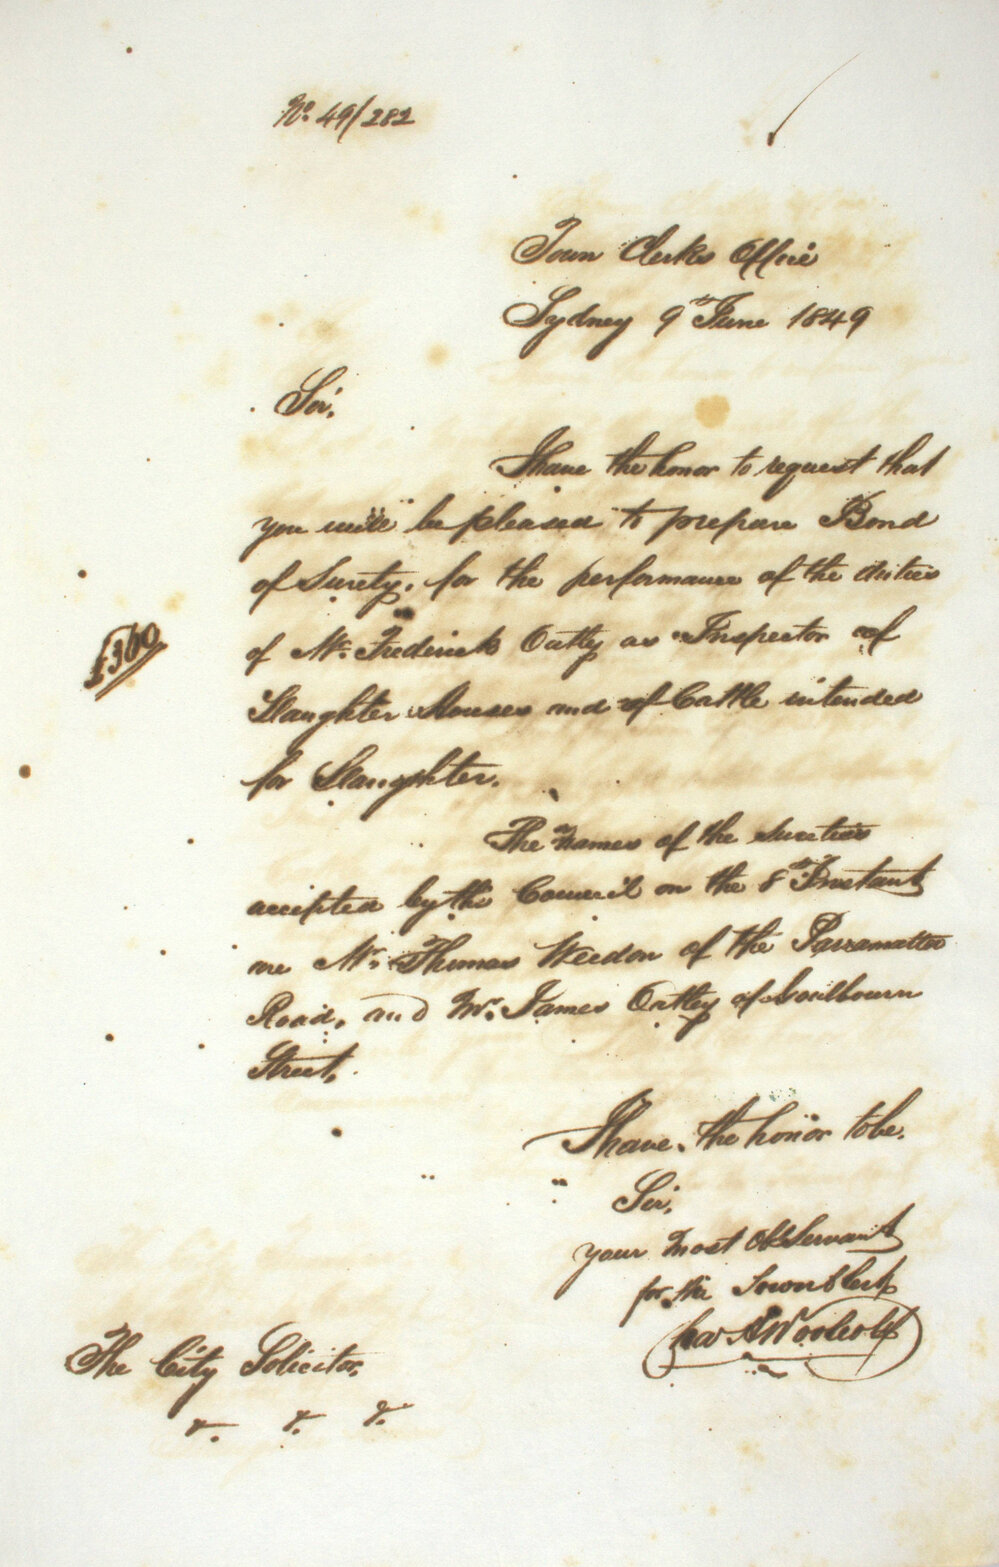 No. 49/282
Town Clerks Office
Sydney 9th June 1849
Sir,
I have the honor to request that
you will be pleased to prepare Bond
of Surety, for the performance of the duties
£300
of Mr. Frederick Oatley as Inspector of
Slaughter Houses and of Cattle intended
for Slaughter.
The names of the Sureties
accepted by the Council on the 8th Instant
are Mr. Thomas Weedon of the Parramatta
Road, and Mr. James Oatley of Goulbourn
Street.
I have the honor to be.
Sir,
your most Ob Servant
for the Town Clerk
Chas A Woolcott
The City Solicitor.
&. &. &.